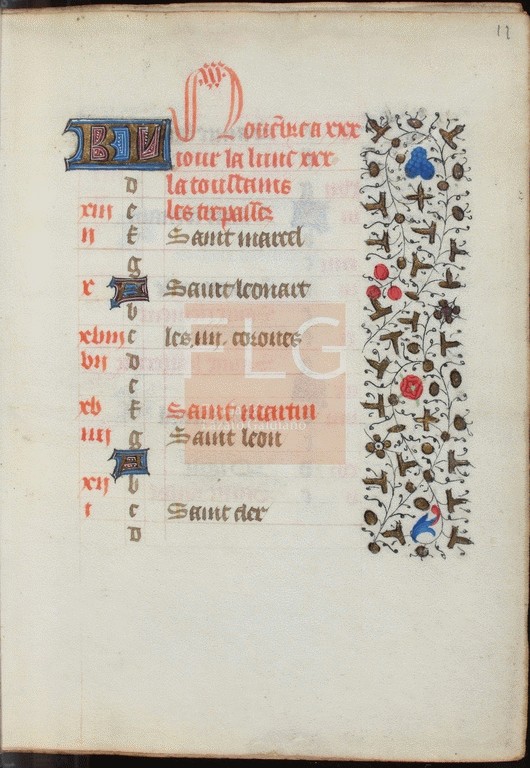 11
KL Nouẽbre a xxx
iour la lune xxx
d la toussains
xiii e les trepassez
ii f Saint marcel
g
x A Saint leonart
b
xviii c les iiii coroñes
vii d
e
xv f Saint martin
iiii g Saint leon
A
xii b
i c Saint cler
d
FLG
Lázaro Galdiano